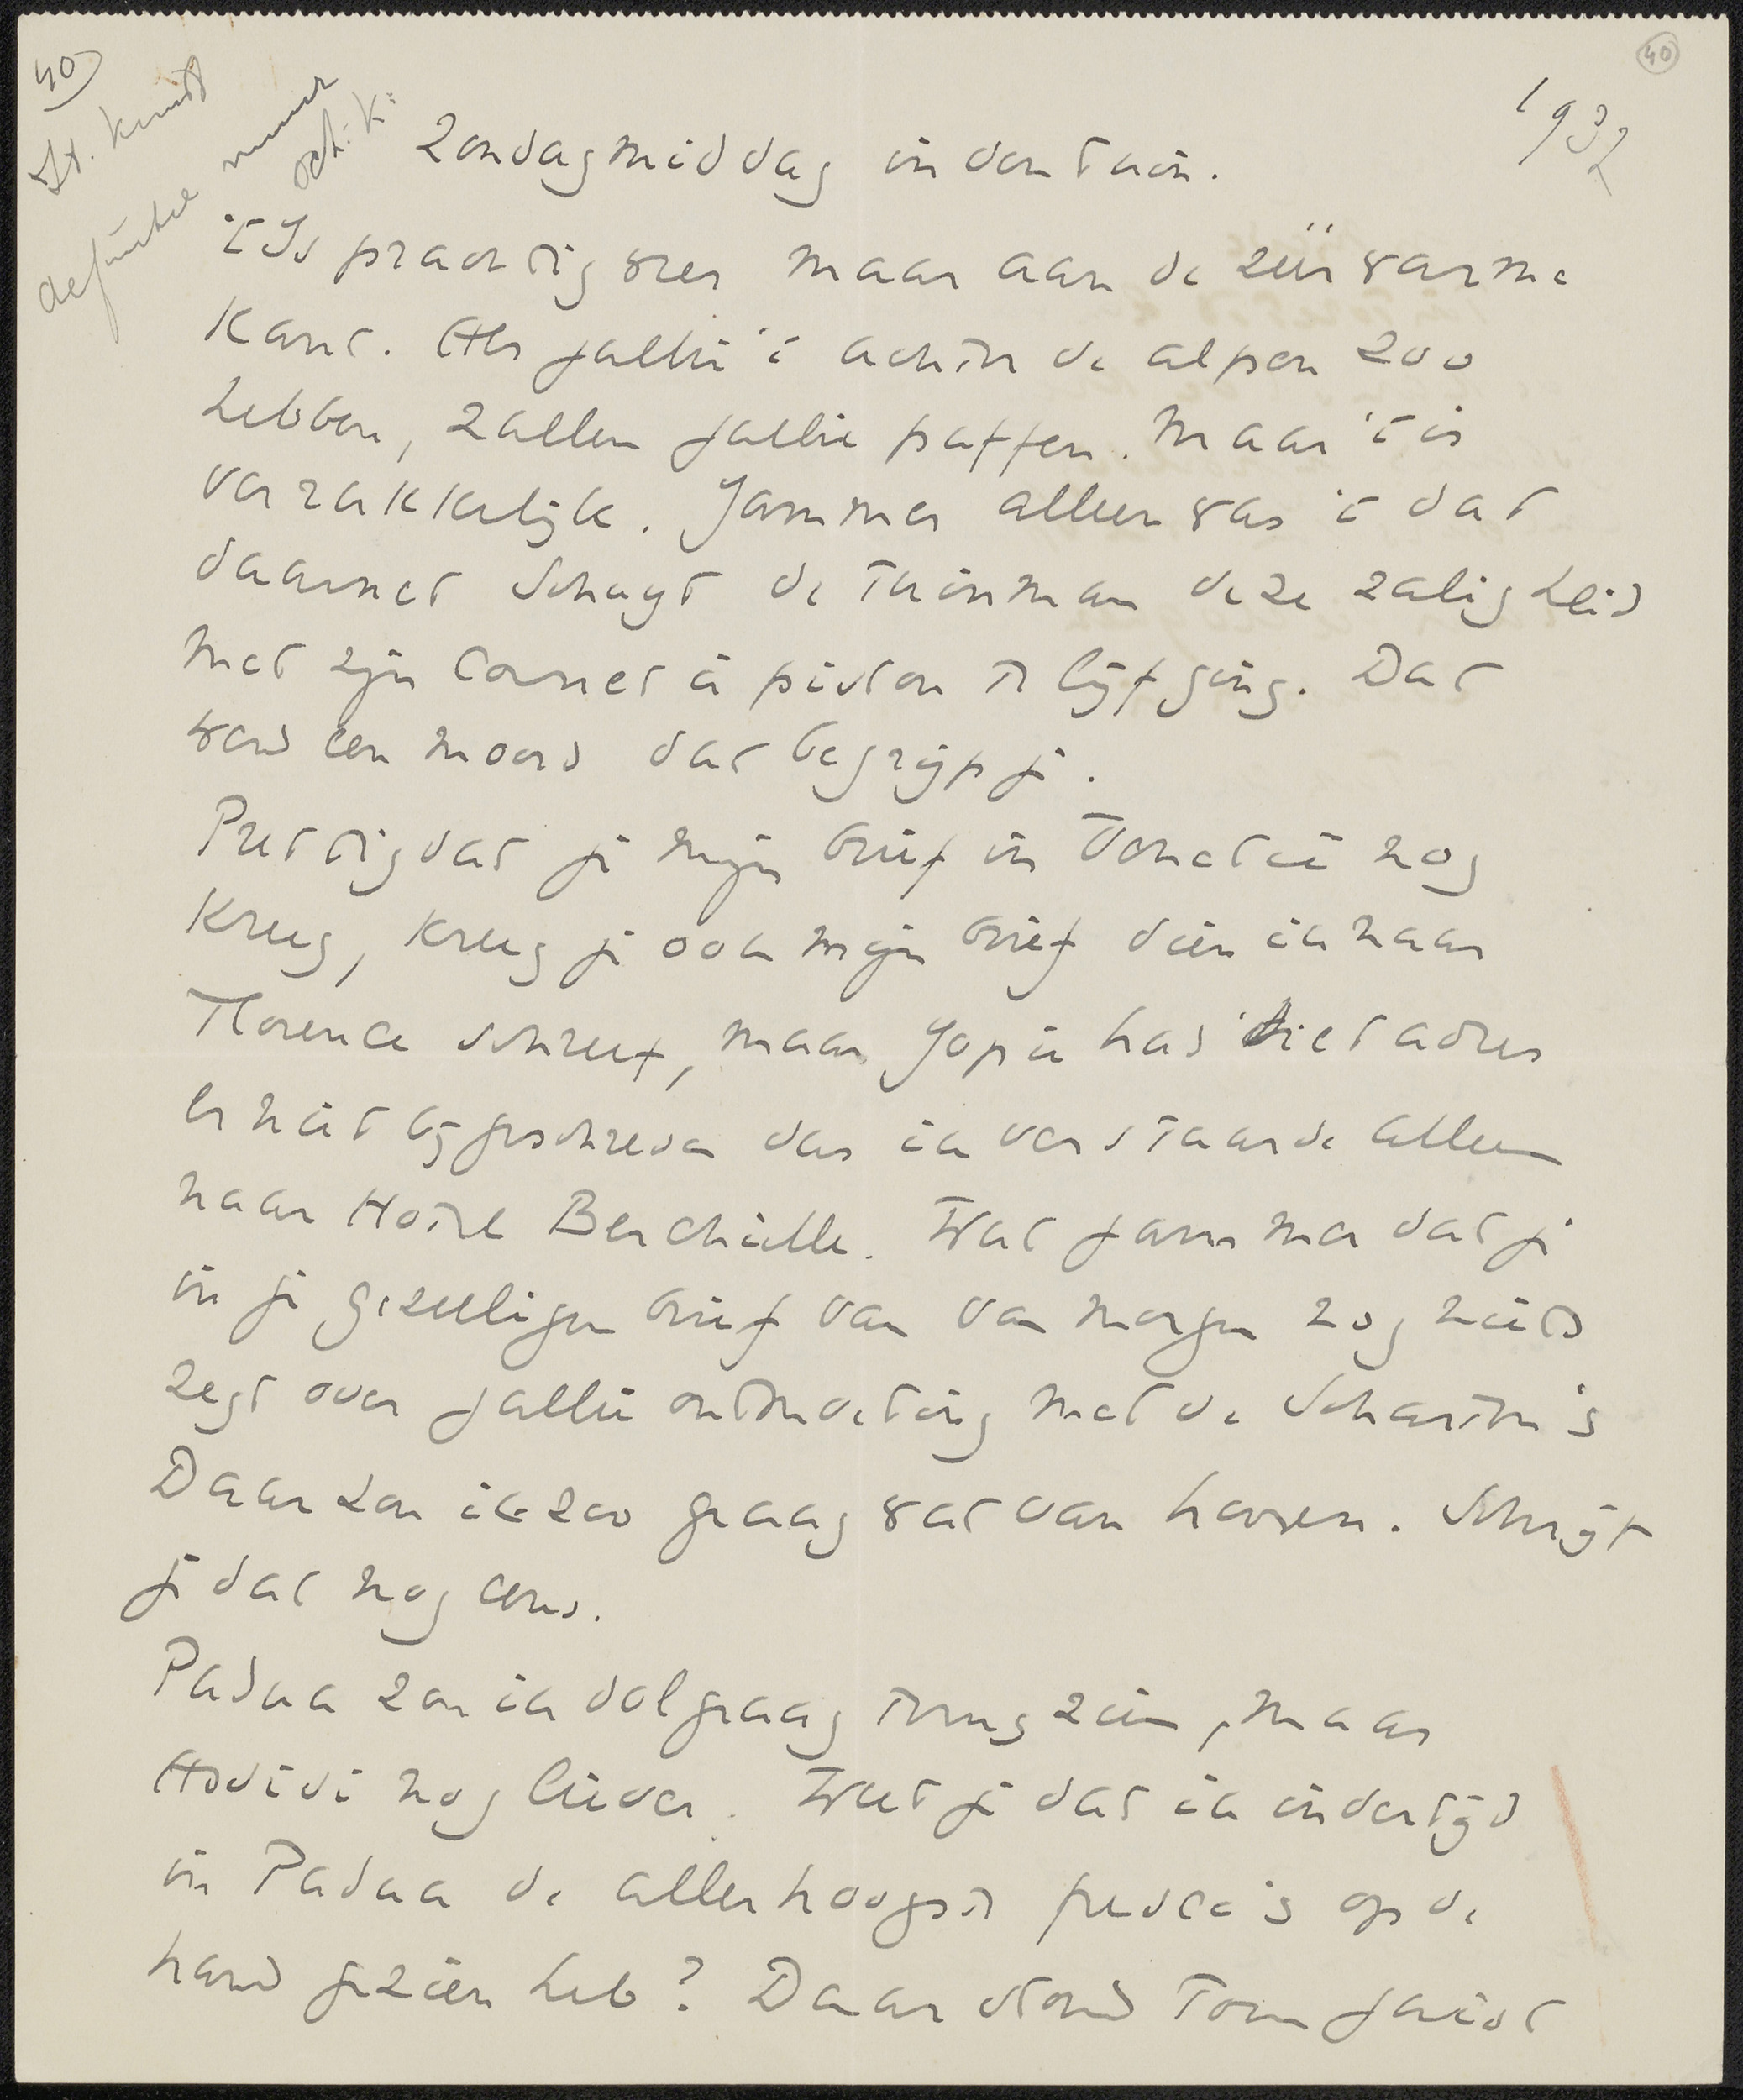 40
40
1932
Zondagmiddag in den tuin.
't Is prachtig weer maar aan de zéér warme
kant. Als jullie 't achter de alpen zoo
hebben, zullen jullie puffen. Maar 't is
verrukkelijk. Jammer alleen was 't dat
daarnet schuyt de tuinman deze zaligheid
met zijn cornet à piston te lijf ging. Dat
werd een moord dat begrijp je.
Prettig dat je mijn brief in Venetië nog
kreeg, kreeg je ook mijn brief dien ik naar
Florence schreef, maar Jopie had 't adres
er niet bijgeschreven dus ik verstuurde alleen
naar Hotel Berchielli. Wat jammer dat je
in je gezelligen brief van van morgen nog niets
zegt over jullie ontmoeting met de Scharten's
Daar zou ik zoo graag wat van hooren. Schrijf
je dat nog eens.
Padua zou ik dolgraag terug zien, maar
Assisi nog liever. Weet je dat ik indertijd
in Padua de allerhoogste fresco's op de
hand gezien heb? Daar stond toen juist